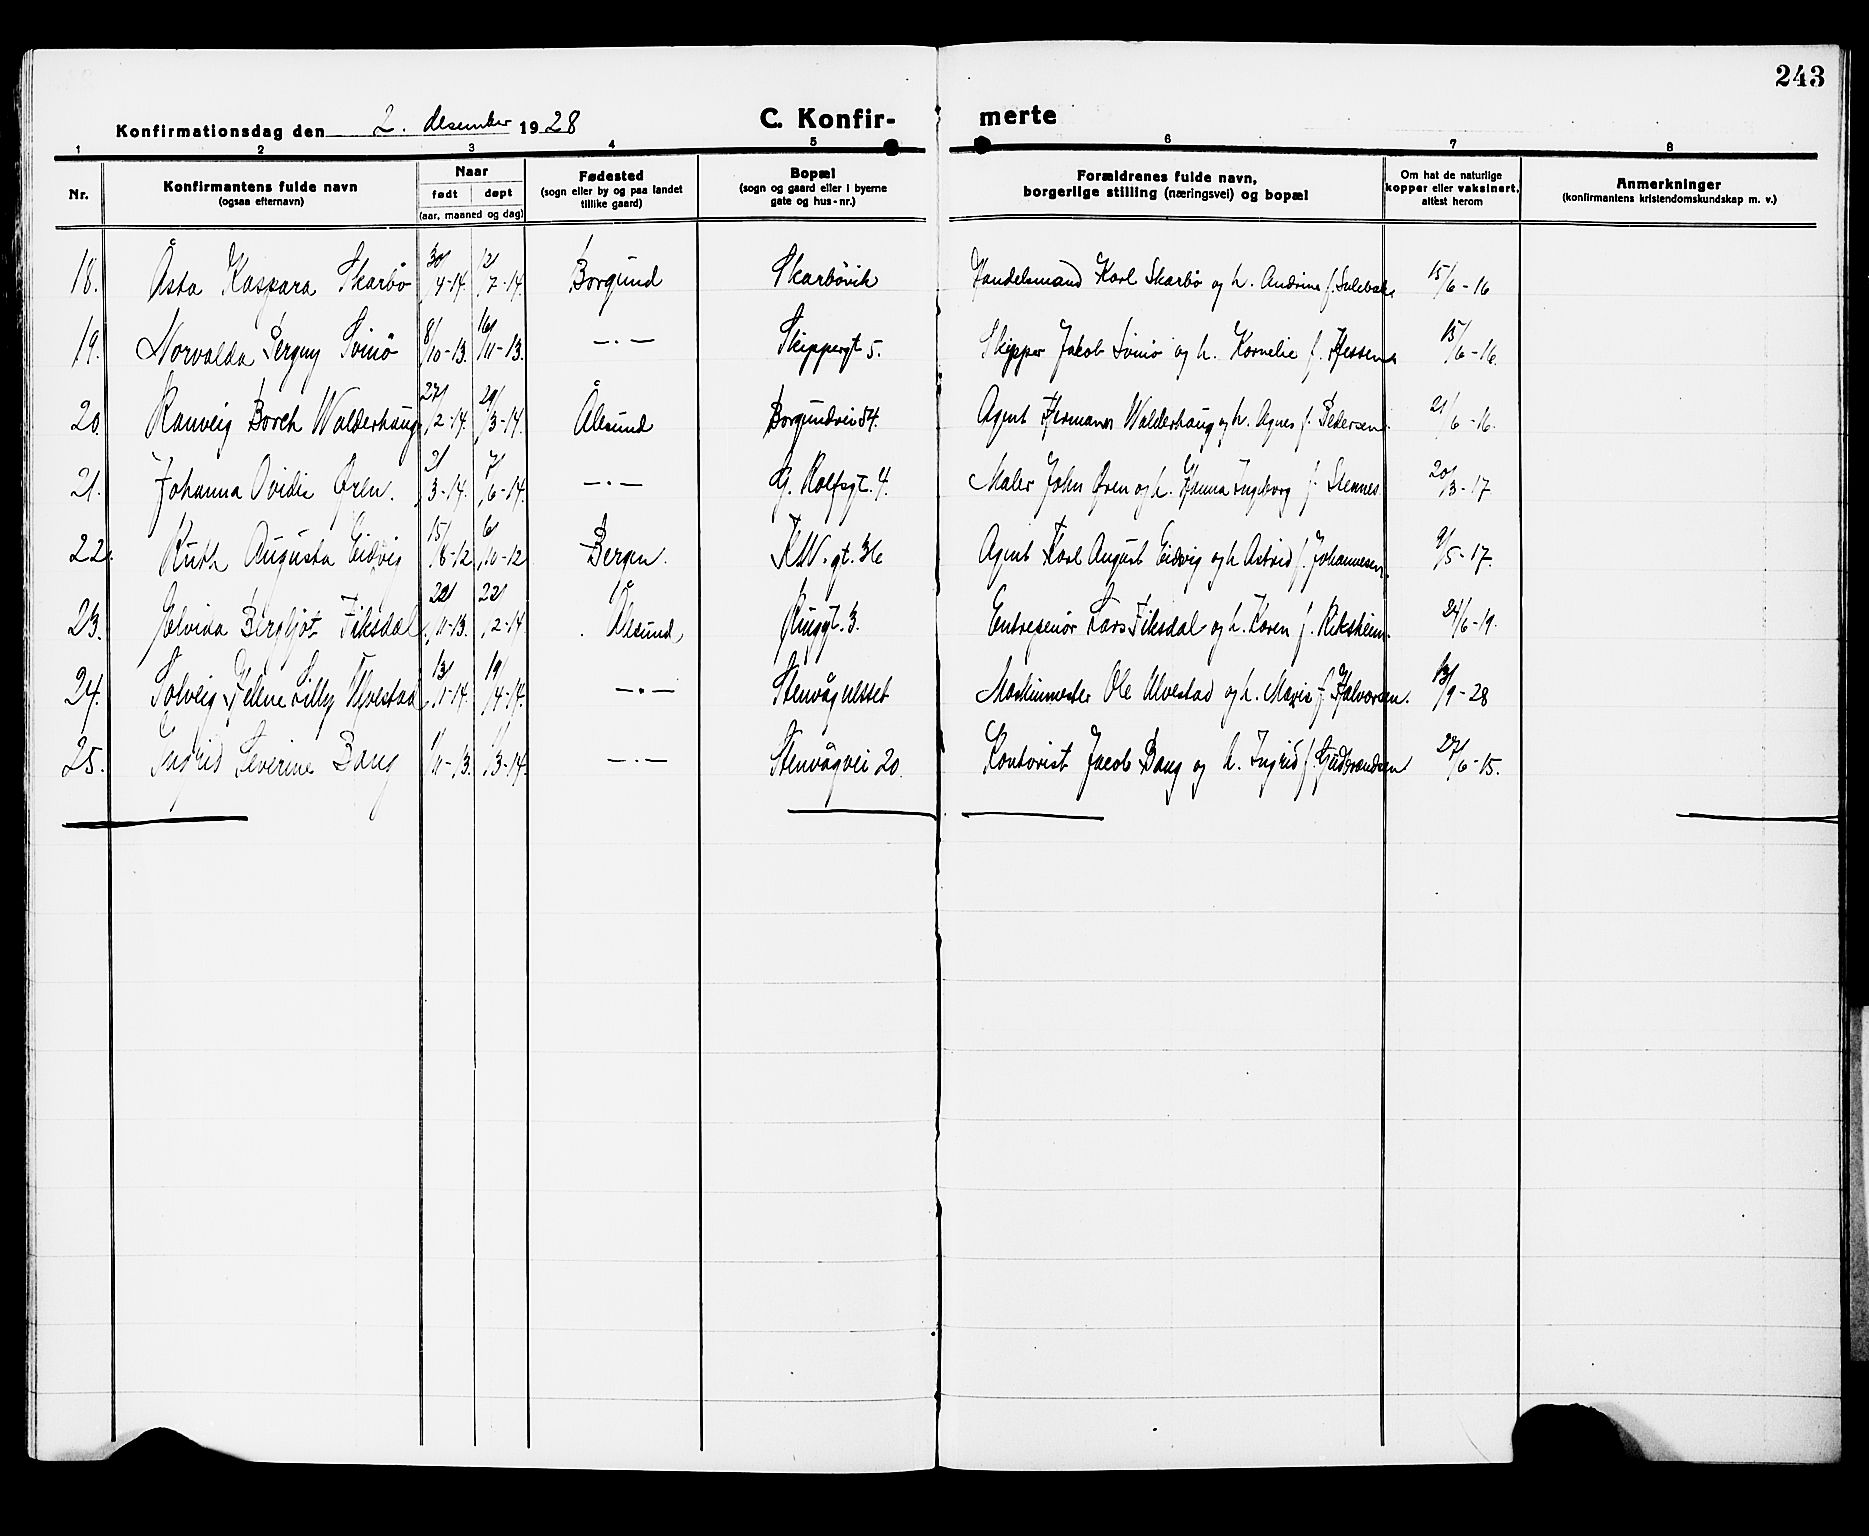 243
Konfirmationsdag den 2. desember 1928 C. Konfirmerte
1 2 3 4 5 6 7 8
Nr. Konfirmantens fulde navn (ogsaa efternavn) Naar født døpt (aar, maaned og dag) Fødested (sogn eller by og paa landet tillike gaard) Bopæl (sogn og gaard eller i byerne gate og hus-nr.) Forældrenes fulde navn, borgerlige stilling (næringsvei) og bopæl Om hat de naturlige kopper eller vaksinert, attest herom Anmerkninger (konfirmantens kristendomskundskap m. v.)
18. Åsta Kaspara Skarbø 30/4-14. 12/7-14. Borgund Skarbøvik Handelsmand Karl Skarbø og h. Andrine f. Sulebak 15/6-16
19. Norvalda Pergny Svinø 8/10-13. 16/11-13. —·— Skippergt 5. Skipper Jakob Svinø og h. Kornelie f. Hessen 15/6-16.
20. Ranveig Borch Walderhaug 27/2-14. 29/3-14. Ålesund Borgundvei 54. Agent Hermann Walderhaug og h. Agnes f. Pedersen. 21/6-16.
21. Johanna Ovidie Øren. 2/3-14. 7/6-14. —·— G. Rolfsgt. 4. Maler John Øren og h. Hanna Ingeborg f. Stennes 20/3-17
22. Ruth Augusta Eidvig 15/8-12 6/10-12 Bergen. K.W. gt. 36 Agent Karl August Eidvig og h Astrid f. Johannesen. 9/5-17.
23. Jelvida Bergljot Fiksdal 22/11-13. 22/2-14 Ålesund Ringgt. 3. Entrepenør Lars Fiksdal og h. Karen f. Riksheim. 24/6-19.
24. Solveig Jelene Lilly Ulvestad 13/1-14. 19/4-14. —·— Stenvågnesset Maskinmester Ole Ulvestad og h. Marie f. Halvorsen. 13/9-28
25. Ingrid Severine Bang 1/11-13. 1/3-14. —·— Stenvågvei 20. Kontorist Jacob Bang og h. Ingrid f. Gudbrandsen 27/6-15.